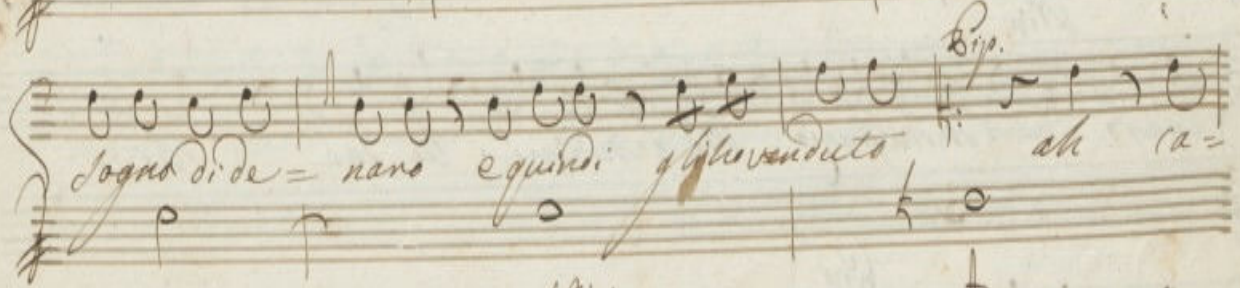 Bip.
sogno di de= naro e quindi gli ho venduto ah ca=